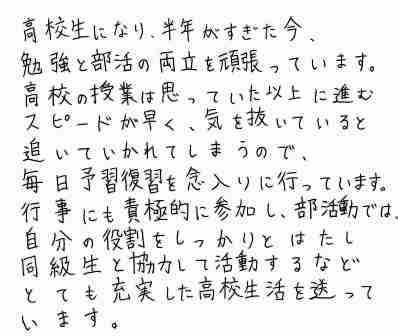 高校生になり、半年がすぎた今、
勉強と部活の両立を頑張っています。
高校の授業は思っていた以上に進む
スピードが早く、気を抜いていると
追いていかれてしまうので、
毎日予習復習を念入りに行っています。
行事にも責極的に参加し、部活動では、
自分の役割をしっかりとはたし
同級生と協力して活動するなど
とても充実した高校生活を送って
います。